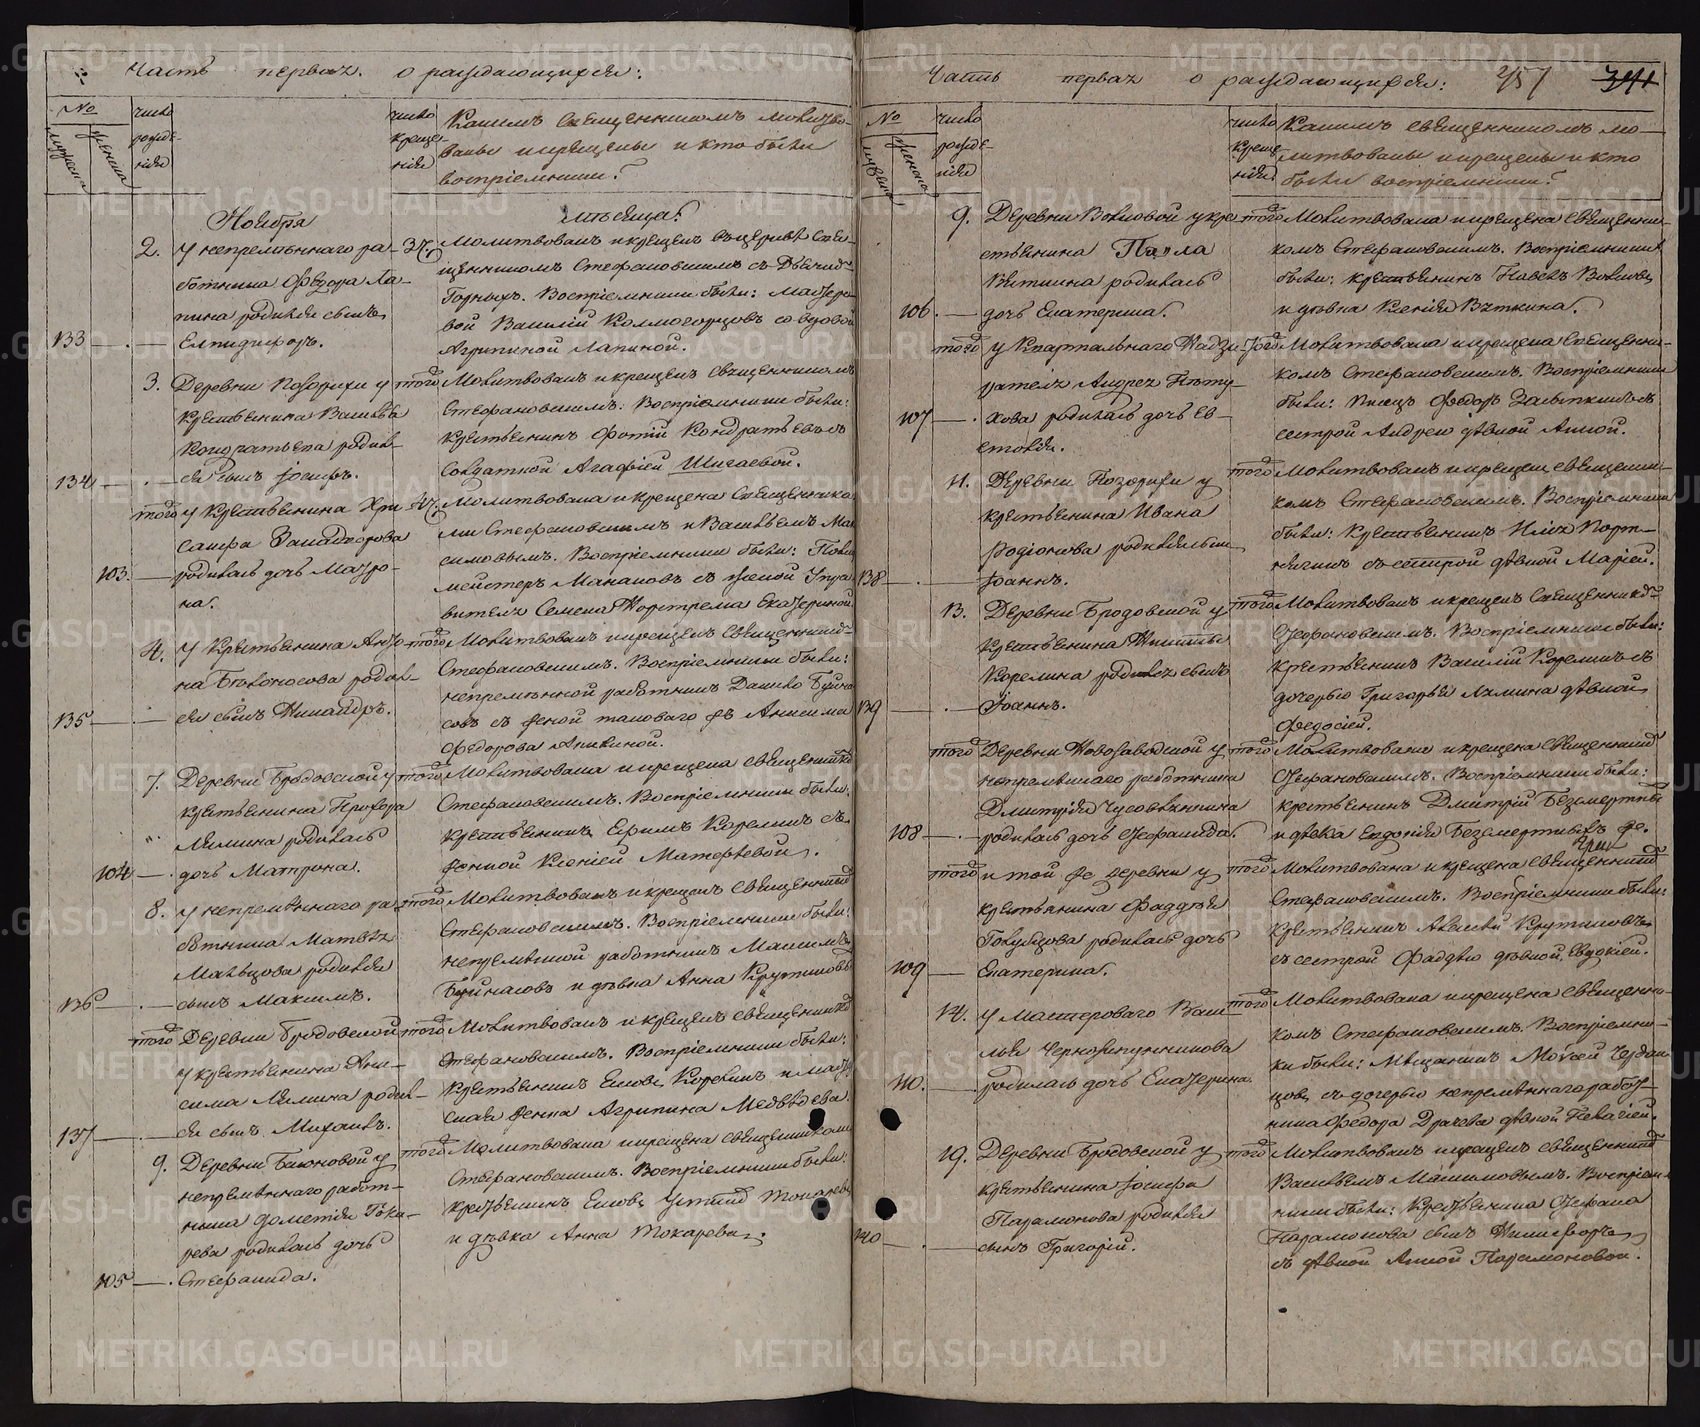 Часть первая. о раждающихся:
№ мужеска женска
число рожде-
нiя
число креще-
нiя
Какимъ священникомъ молитво-
ваны и крещены и кто были
воспрiемники?
Ноября
мѣсяца:
2. У непремѣннаго ра-
ботника Федора Ла-
пина родился сынъ
133 Елпидифоръ.
Молитвованъ и крещенъ въ церкви Свя-
щенникомъ Стефановскимъ съ
Воспрiемники были: Мастеро-
вой Василiй Колмогорцовъ со вдовой
Агрипиной Лапиной.
3. Деревни Позарихи у
крестьянина Василья
Кондратьева родил-
134 ся сынъ Iосифъ.
того Молитвованъ и крещенъ священникомъ
Стефановскимъ: Воспрiемники были:
крестьянинъ Фотiй Кондратьевъ съ
солдаткой Агафiей Шигаевой.
того у крестьянина Хри-
санфа
103. родилась дочь Матро-
на.
Молитвована и крещена Священника-
ми Стефановскимъ и Васильемъ Мак-
симовымъ. Воспрiемники были:
мейстеръ Манаковъ съ женой Упра-
вителя Семена Екатериной.
4. У крестьянина Анто-
на Бѣлоносова родил-
135 ся сынъ Никандръ.
того Молитвованъ и крещенъ Священник.
Стефановскимъ. Воспрiемники были:
непремѣнной работникъ Данило Буйно-
совъ съ женой таковаго же Анисима
Федорова Аникиной.
7. Деревни Бродовской у
крестьянина Прохора
Лямина родилась
104 дочь Матрона.
того Молитвована и крещена священник.
Стефановскимъ. Воспрiемники были:
крестьянинъ Ефимъ Корелинъ съ
женкой Ксенiей Матфѣевой.
8. У непремѣннаго ра-
ботника Матвѣя
Мальцова родился
136 сынъ Максимъ.
того Молитвованъ и крещенъ священник.
Стефановскимъ. Воспрiемники были:
непремѣнной работникъ Максимъ
Буйнасовъ и дѣвка Анна
того Деревни Бродовской
у крестьянина Ани-
сима Лямина родил-
137 ся сынъ Михаилъ.
того Молитвованъ и крещенъ священник.
Стефановскимъ. Воспрiемники были:
крестьянинъ Еловъ Корелинъ и
женка Агрипина Медвѣдева.
9. Деревни Баиновой у
непремѣннаго работ-
ника Дометiя Тока-
рева родилась дочь
105 Стефанида.
того Молитвована и крещена священникомъ
Стефановскимъ. Воспрiемники были:
крестьянинъ Токаревъ
и дѣвка Анна Токарева.
Часть первая о раждающихся: 257 341
№ мужеска женска
число рожде-
нiя
число креще-
нiя
Какимъ священникомъ мо-
литвованы и крещены и кто
были воспрiемники?
9. Деревни Волковой у кре-
стьянина Павла
Вяткина родилась
106 дочь Екатерина.
того Молитвована и крещена священни-
комъ Стефановскимъ. Воспрiемники
были: крестьянинъ Павелъ Волковъ
и дѣвка Ксенiя Вяткина.
того у Квартальнаго Надзи-
рателя Андрея Пѣту-
107 хова родилась дочь Ев-
столiя.
Молитвована и крещена Священни-
комъ Стефановскимъ. Воспрiемники
были: писецъ Федоръ Засыпкинъ съ
сестрой Андрея дѣвкой Анной.
11. Деревни Позарихи у
крестьянина Ивана
Родiонова родился сынъ
138 Iоаннъ.
того Молитвованъ и крещенъ священни-
комъ Стефановскимъ. Воспрiемники
были: крестьянинъ Илья Порт-
нягинъ съ сестрой дѣвкой Марiей.
13. Деревни Бродовской у
крестьянина Никиты
Корелина родился сынъ
139 Iоаннъ.
того Молитвованъ и крещенъ Священник.
Стефановскимъ. Воспрiемники были:
крестьянинъ Василiй Корелинъ съ
дочерью Григорья Лямина дѣвкой
Федосiей.
того Деревни Новозаводской у
непремѣннаго работника
Дмитрiя Чусовлянкина
108 родилась дочь Стефанида.
того Молитвована и крещена Священник.
Стефановскимъ. Воспрiемники были:
крестьянинъ Дмитрiй Безсмертныхъ
и дѣвка Евдокiя Безсмертныхъ же.
того и той же деревни у
крестьянина Фаддѣя
Голубцова родилась дочь
109 Екатерина.
того Молитвована и крещена священник.
Стефановскимъ. Воспрiемники были:
крестьянинъ Алексѣй Крутиковъ
съ сестрой Фаддѣя дѣвкой Евдокiей.
14. У мастероваго Васи-
лья Черноскутникова
110. родилась дочь Екатерина
того Молитвована и крещена священни-
комъ Стефановскимъ. Воспрiемни-
ки были: Мѣщанинъ Моѵсей Чердан-
цовъ съ дочерью непремѣннаго работ-
ника Федора дѣвкой Пелагiей.
19. Деревни Бродовской у
крестьянина Iосифа
Парамонова родился
140 сынъ Григорiй.
того Молитвованъ и крещенъ священник.
Васильемъ Максимовымъ. Воспрiем-
ники были: крестьянина Стефана
Парамонова сынъ Никифоръ
съ дѣвкой Анной Парамоновой.
METRIKI.GASO-URAL.RU